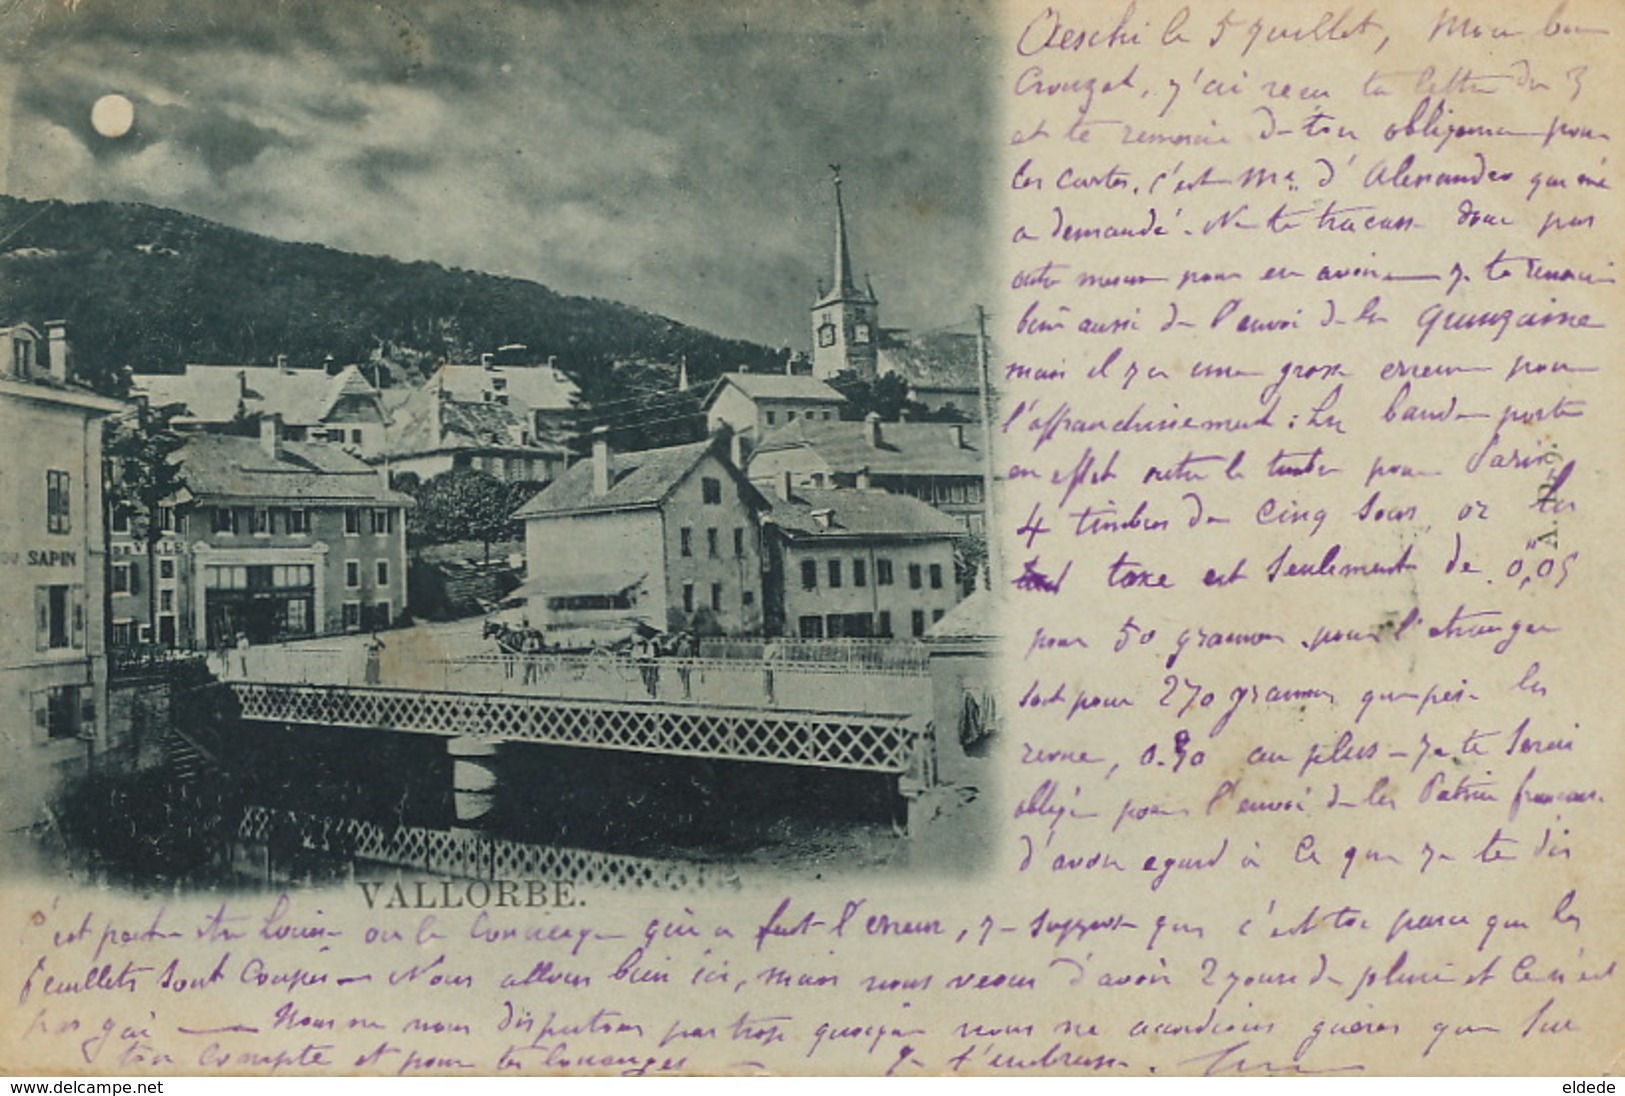 Aeschi le 5 Juillet, Mon bon
Crouzet, j'ai reçu ta lettre du 3
et te remercie de ton obligeance pour
les cartes. c'est Me d'Alexandre qui m'en
a demandé. Ne te tracasse donc pas
outre mesure pour en avoir — je te remercie
bien aussi de l'envoi de la Quinzaine
mais il y a une grosse erreur pour
l'affranchissement : La bande porte
en effet outre le timbre pour Paris
4 timbres de cinq sous, or la
taxe est seulement de 0,05
pour 50 grammes pour l'étranger
soit pour 270 grammes que pèse la
revue, 0.30 au plus — Je te serai
obligé pour l'envoi de la Patrie française
d'avoir égard à ce que je te dis
VALLORBE.
DU SAPIN
DE VILLE
C'est peut-être Louise ou le concierge qui a fait l'erreur, je suppose que c'est toi parce que les
feuillets sont coupés — Nous allons bien ici, mais nous venons d'avoir 2 jours de pluie et ce n'est
pas gai — Nous ne nous disputons pas trop quoique nous ne accordions guères que sur
ton compte et pour tes louanges — Je t'embrasse.
delcampe.net
eldede